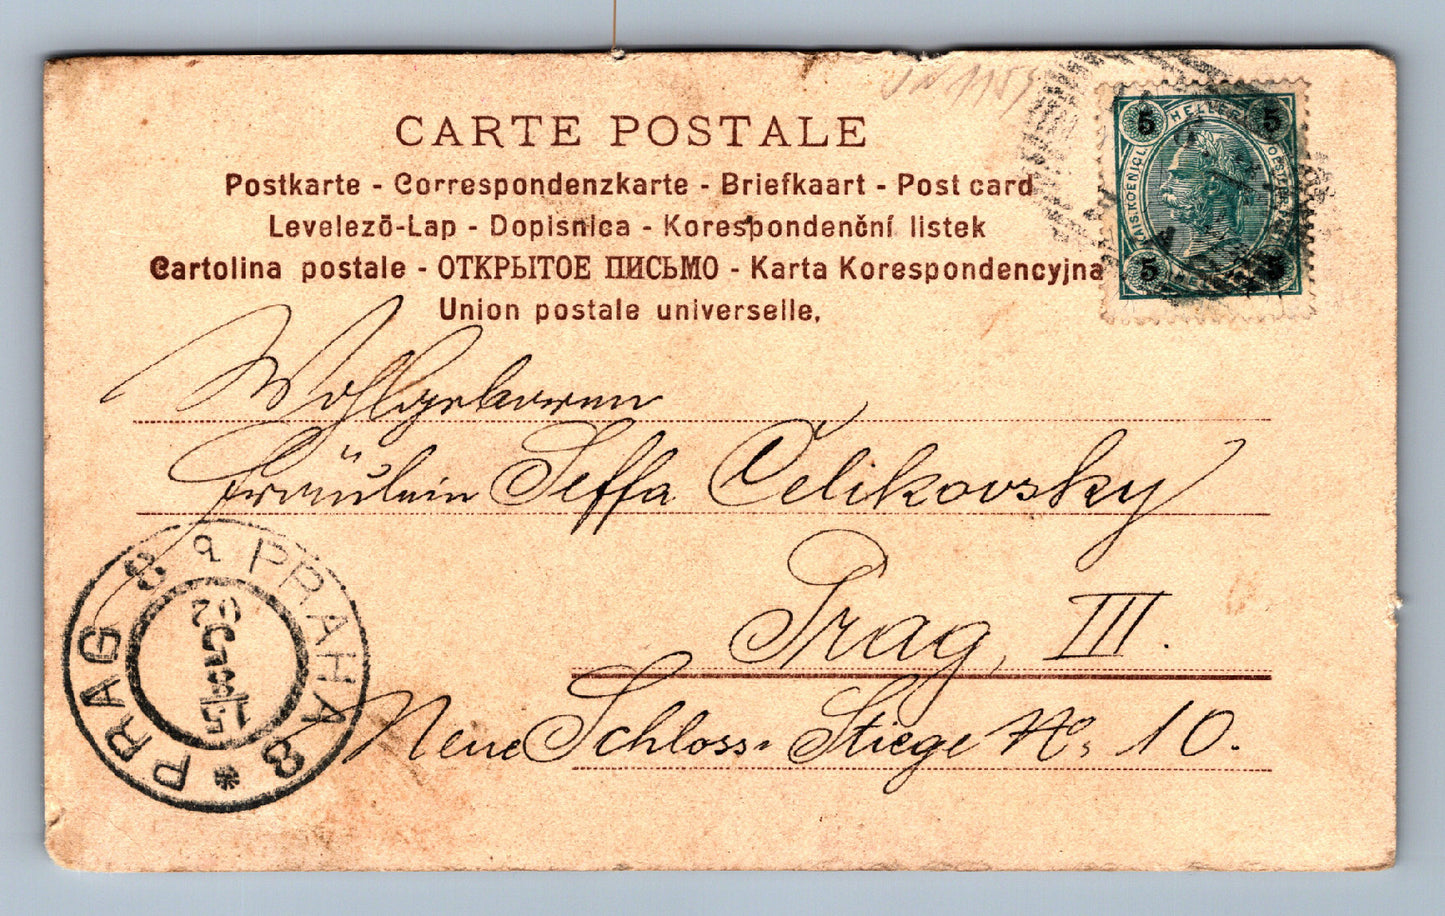 CARTE POSTALE
Postkarte - Correspondenzkarte - Briefkaart - Post card
Levelező-Lap - Dopisnica - Korespondenční listek
Cartolina postale - ОТКРЫТОЕ ПИСЬМО - Karta Korespondencyjna
Union postale universelle.
5 HELLER 5
5 5
Wohlgeboren
Fräulein Seffa Čelikovsky
Prag, III.
Neue Schloss-Stiege No. 10.
PRAG 8 PRAHA 8